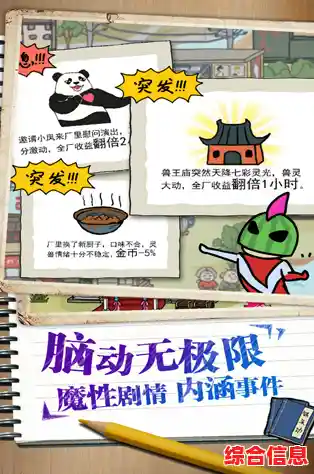 息!!!
突发!!!
邀请小凤来厂里慰问演出,
分激动,全厂收益翻倍2
突发!!!
兽王庙突然天降七彩灵光,兽灵
大动,全厂收益翻倍1小时。
厂里换了新厨子,口味不合,灵
兽情绪十分不稳定,金币-5%
脑动无极限
魔性剧情 内涵事件
综合信息